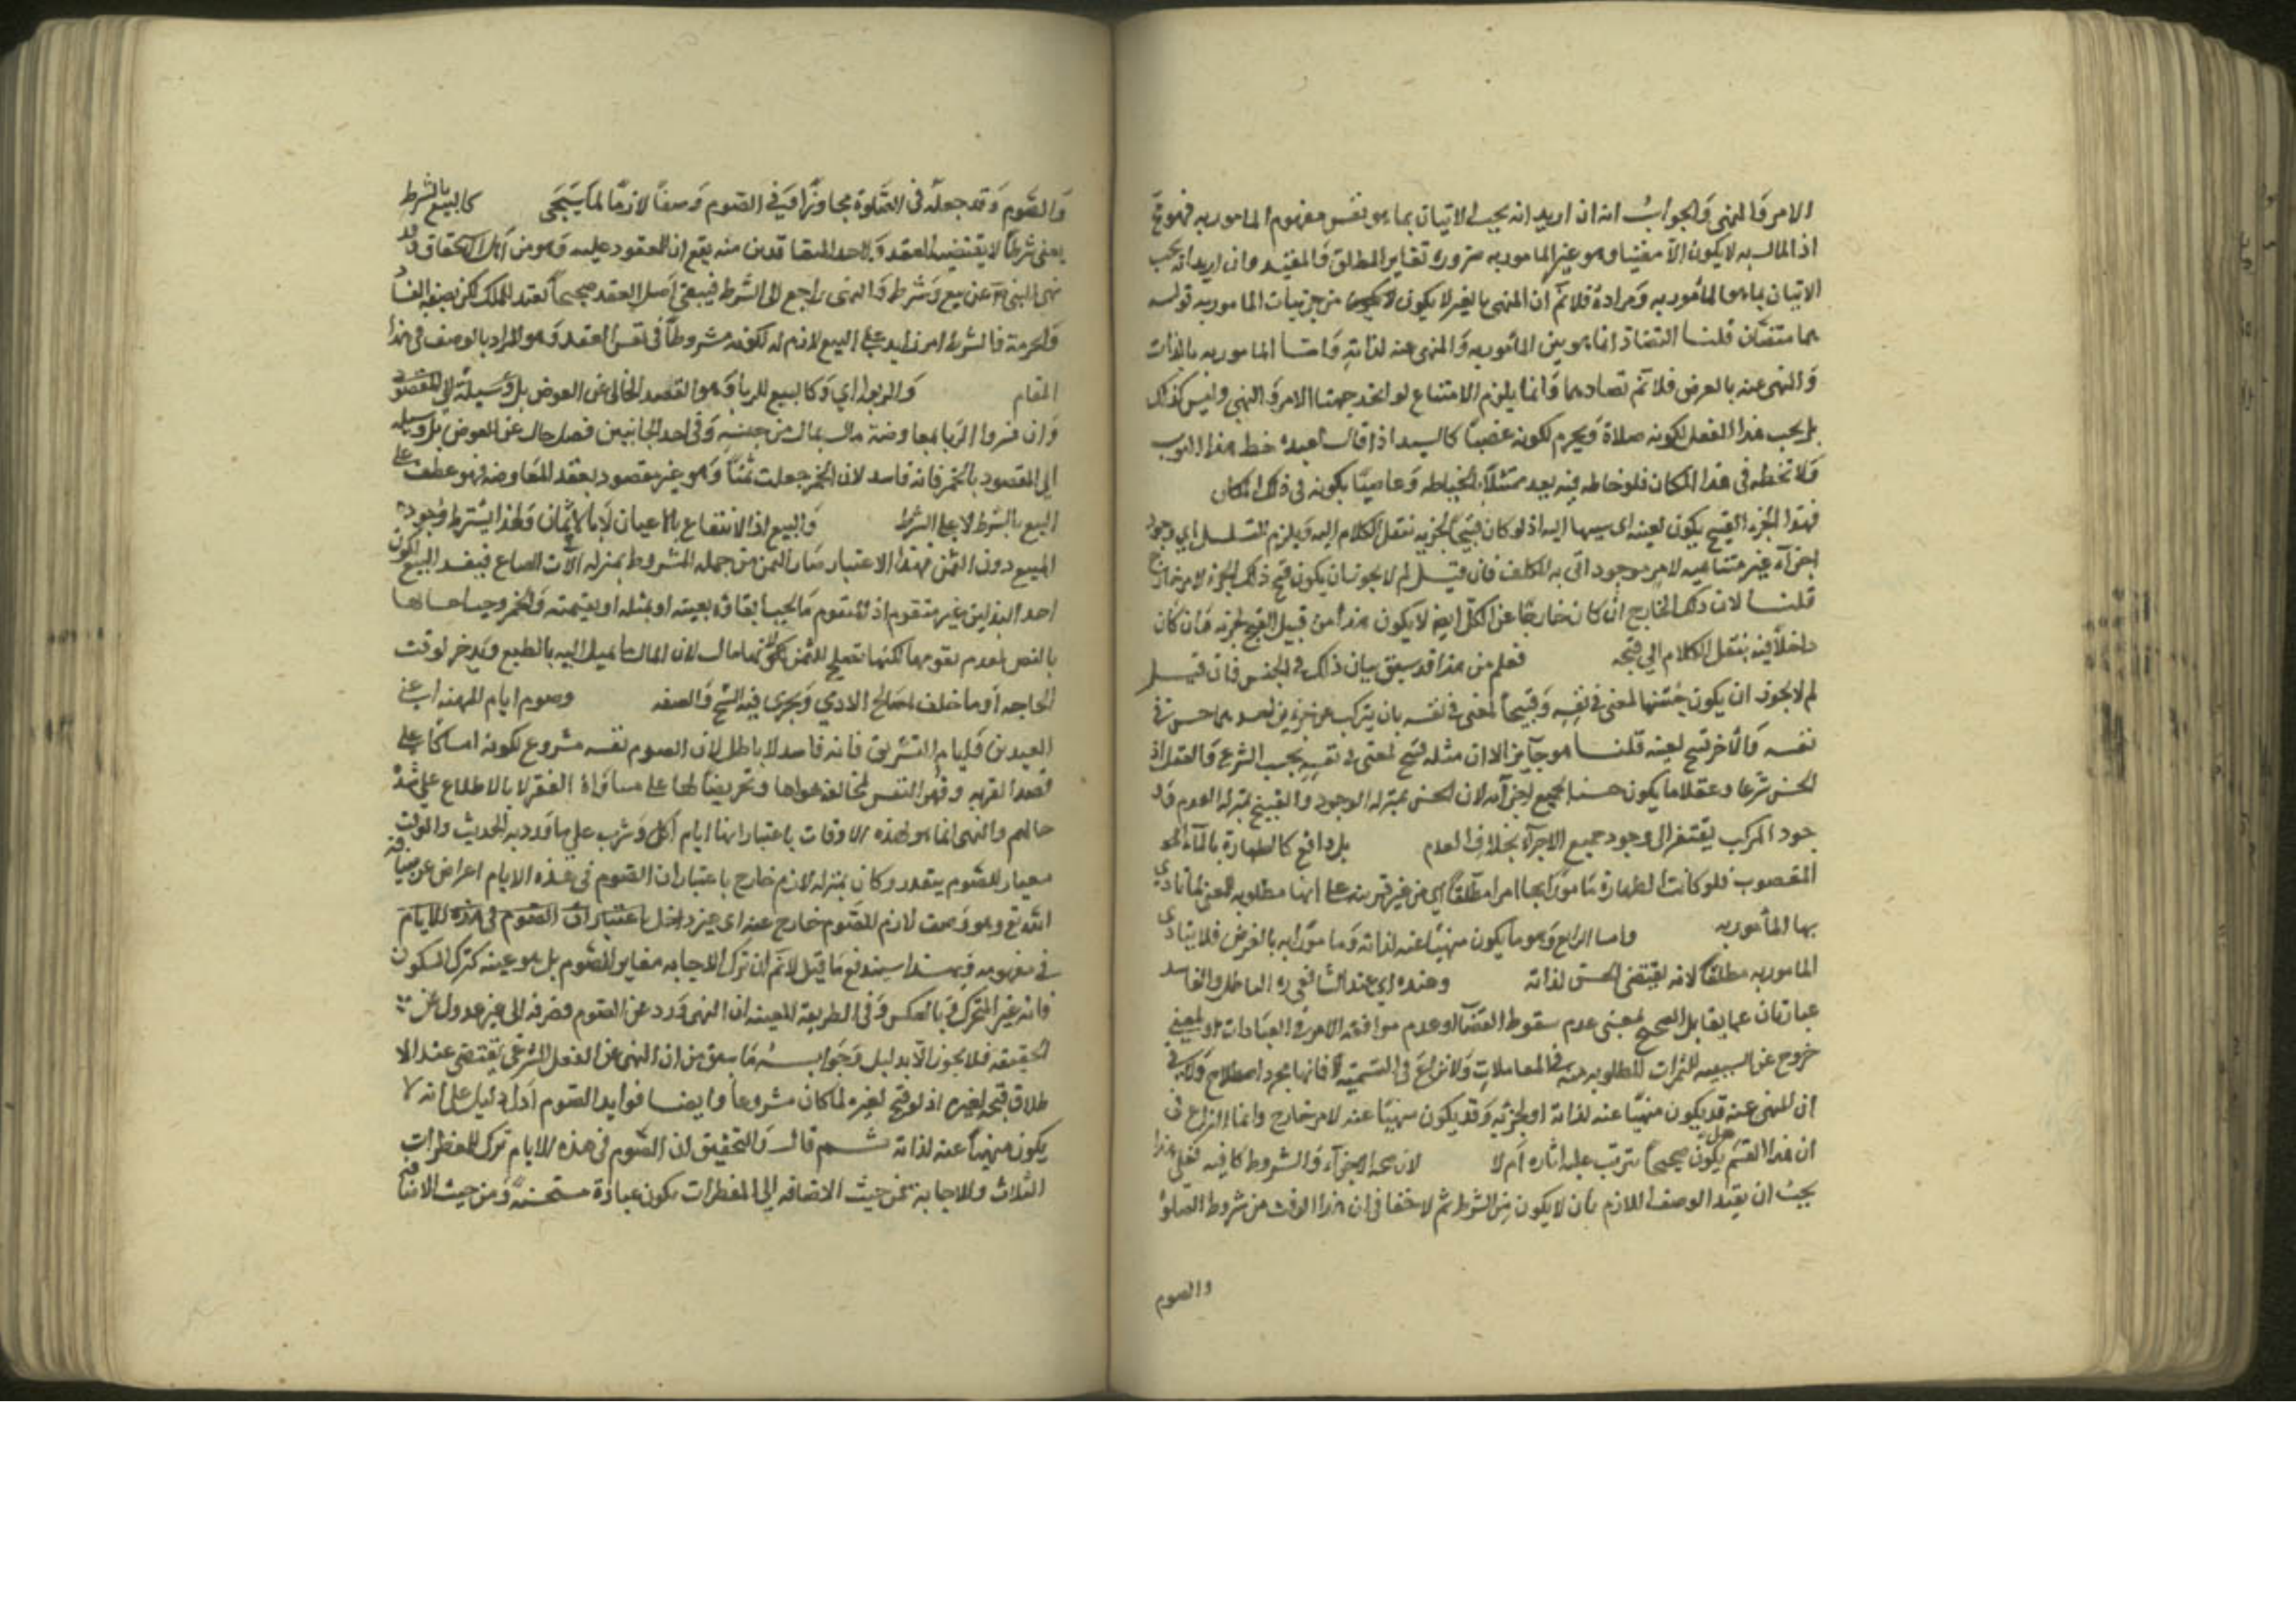 الامر والمنهى والجواب انه ان اريد انه يجب الاتيان بما هو نفس مفهوم المامور به فهو مع
اذ المال به لا يكون الا مقيدا وهو غير المامور به ضرورة تغاير المطلق والمقيد وان اريد انه يجب
الاتيان بما هو المامور به ومراده فلا نم ان المنهى بالغير لا يكون من جزئيات المامور به قوله
هما متضادان قلنا التضاد انما هو بين المامور به والمنهى عنه لذاته واما المامور به بالذات
والنهى عنه بالعرض فلا نم تضادهما وانما يلزم الامتناع لو اتحد جهتا الامر والنهى وليس كذلك
بل يجب هذا الفعل لكونه صلاة ويحرم لكونه غصبا كالسيد اذا قال لعبده خط هذا الثوب
ولا تخطه في هذا المكان فلو خاطه فيه يعد ممتثلا بالخياطه وعاصيا بكونه في ذلك المكان
فهذا الجزء القبيح يكون لعينه اى سببها اليه اذ لو كان قبيحا لجزئه ننقل الكلام اليه ويلزم التسلسل اي وجود
اجزآء غير متناهيه لامر موجود اتى به المكلف فان قيل لم لا يجوز ان يكون قبح ذلك الجزء لامر خارج
قلنا لان ذلك الخارج ان كان خارجا عن الكل ايضا لا يكون هذا من قبيل القبيح لجزئه وان كان
داخلا فيه ينتقل الكلام الي قبحه فعلم من هذا قد سبق بيان ذلك في الحسن فان قيل
لم لا يجوز ان يكون حسنها لمعنى في نفسه وقبيحا لمعنى في نفسه بان يتركب من جزئين احدهما حسن في
نفسه والآخر قبيح لعينه قلنا هو جايز الا ان مثله قبيح لمعنى في نفسه بحسب الشرع والعقل اذ
الحسن شرعا وعقلا ما يكون حسنا لجميع اجزآئه لان الحسن بمنزله الوجود والقبيح بمنزله العدم وو
جود المركب يفتقر الى وجود جميع الاجزآء بخلاف العدم بل واقع كالطهارة بالمآء
المغصوب فلو كانت الطهارة مامورا بها امرا مطلقا اي من غير قرينه على انها مطلوبه لمعنى لما تادي
بها المأمور به واما الرابع وهو ما يكون منهيا عنه لذاته ومامورا به بالعرض فلا يتادي
المامور به مطلقا لانه يقتضى الحسن لذاته وعنده اي عند الشافعى ره الباطل والفاسد
عبارتان عما يقابل الصحيح لمعنى عدم سقوط القضآ او عدم موافقه الامر في العبادات او لمعنى
خروج عن السببيه للثمرات المطلوبه منه في المعاملات ولا نزاع في التسميه فانها مجرد اصطلاح ولا في
ان المنهى عنه قد يكون منهيا عنه لذاته او لجزئه وقد يكون منهيا عنه لامر خارج وانما النزاع في
ان هذا القسم هل يكون صحيحا يترتب عليه اثاره ام لا لان صحه الاجزآء والشروط كافيه فعلى هذا
يجب ان يقيد الوصف اللازم بان لا يكون من الشرط ثم لا خفا في ان هذا الوقت من شروط الصلوة
والصوم
والصوم وقد جعله في الصلوة مجاورا وفي الصوم وصفا لازما لما سيجى كالبيع بالشرط
يعنى شرطا لا يقتضيه العقد ولاحد المتعاقدين منه نفع او للمعقود عليه وهو من اهل الاستحقاق وقد
نهى النبى عن بيع وشرط والنهى راجع الى الشرط فيبقى اصل العقد صحيحا مفيد الملك لكن بصفه الفساد
والحرمة فالشرط امر زايد على البيع لازم له لكونه مشروطا في نفس العقد وهو المراد بالوصف في هذا
المقام والربوا اي وكالبيع بالربا وهو الفضل الخالى عن العوض بل وسيلة الى المقصود
وان فسروا الربا بمعاوضة مال بمال من جنسه وفى احد الجانبين فضل خال عن العوض بل وسيله
الى المقصود بالخمر فانه فاسد لان الخمر جعلت ثمنا وهو غير مقصود بعقد المعاوضه فهو عطف على
البيع بالشرط لا على الشرط والبيع اذ الانتفاع بالاعيان لا بالاثمان ولهذا يشترط وجود
المبيع دون الثمن فبهذا الاعتبار صار الثمن من جمله المشروط بمنزله الآت الصناع فيفسد البيع لكون
احد البدلين غير متقوم اذ المتقوم ما يجب ابقاؤه بعينه او بمثله او بقيمته والخمر وجب اجتنابها
بالنص لعدم تقومها لكنها تصلح للثمن لانها مال لان المال ما يميل اليه بالطبع ويدخر لوقت
الحاجه او ما خلف لمصالح الادمي ويجرى فيه الشح والضنه وصوم ايام المنهيه اعنى
العيدين وايام التشريق فانه فاسد لا باطل لان الصوم نفسه مشروع لكونه امساكا على
قصد القربه وقهر النفس لمخالفه هواها وتحريضا لها على مساواة الفقرا بالاطلاع على شدة
حالهم والنهى انما هو لهذه الاوقات باعتبار انها ايام اكل وشرب على ما ورد به الحديث والوقت
معيار للصوم يتقدر وكان بمنزله لازم خارج باعتبار ان الصوم في هذه الايام اعراض عن ضيافه
الله تع وهو وصف لازم للصوم خارج عنه اى غير داخل باعتبار ان الصوم في هذه الايام
في مفهومه وبهذا يندفع ما قيل لا نم ان ترك الاجابه مغاير للصوم بل هو عينه كترك السكون
فانه غير المتحرك وبالعكس وفى الطريقة المعينه ان النهى ورد عن الصوم فصرفه الى غيره عدول عن
الحقيقه فلا يجوز الا بدليل وجوابه ما سبق من ان النهى عن الفعل الشرعى يقتضى عند الا
طلاق قبحه لغيره اذ لو قبح لغيره لما كان مشروعا وايضا فوايد الصوم ادل دليل على انه لا
يكون منهيا عنه لذاته ثم قال والتحقيق ان الصوم فى هذه الايام ترك المفطرات
الثلاث والاجابة فمن حيث الاضافه الى المفطرات يكون عبادة مستحسنه ومن حيث الاضافه